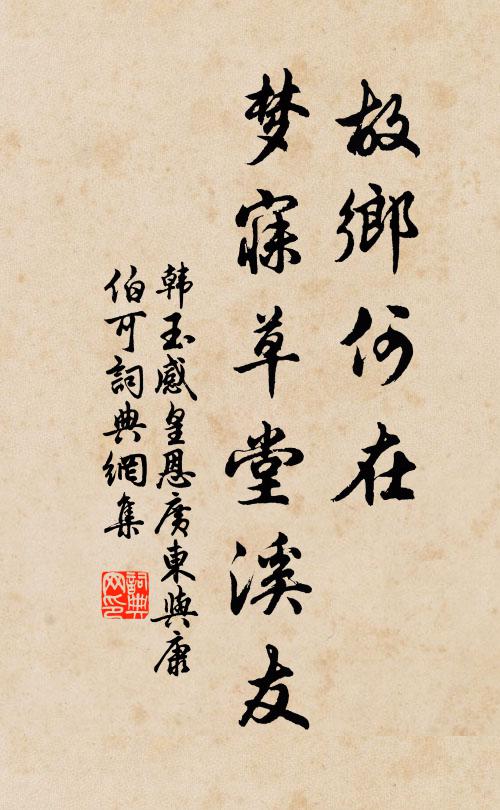 故鄉何在
梦寐草堂溪友
韩玉感皇恩廣東與康
伯可詞典網集
詞典
网印